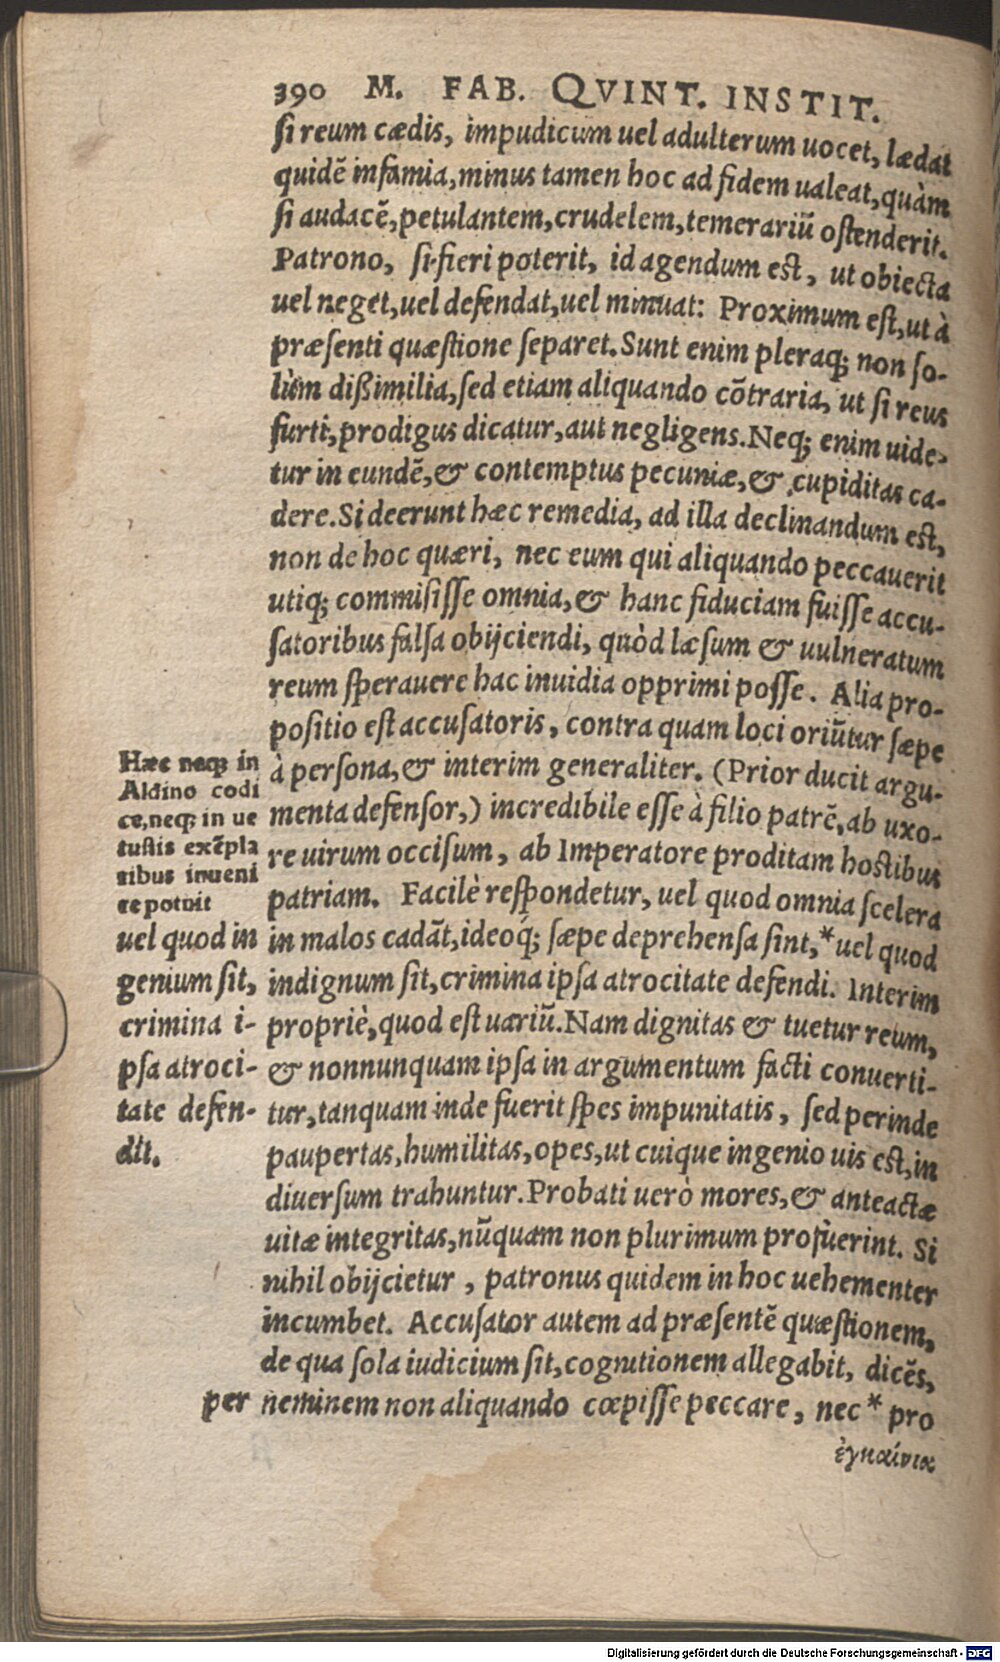 390 M. FAB. QVINT. INSTIT.
si reum cædis, impudicum uel adulterum uocet, lædat
quidẽ infamia, minus tamen hoc ad fidem ualeat, quàm
si audacẽ, petulantem, crudelem, temerariũ ostenderit.
Patrono, si fieri poterit, id agendum est, ut obiecta
uel neget, uel defendat, uel minuat: Proximum est, ut à
præsenti quæstione separet. Sunt enim pleraq; non so-
lùm dißimilia, sed etiam aliquando cõtraria, ut si reus
furti, prodigus dicatur, aut negligens. Neq; enim uide-
tur in eundẽ, & contemptus pecuniæ, & cupiditas ca-
dere. Si deerunt hæc remedia, ad illa declinandum est,
non de hoc quæri, nec eum qui aliquando peccauerit
utiq; commisisse omnia, & hanc fiduciam fuisse accu-
satoribus falsa obijciendi, quòd læsum & uulneratum
reum sperauere hac inuidia opprimi posse. Alia pro-
positio est accusatoris, contra quam loci oriũtur sæpe
à persona, & interim generaliter. (Prior ducit argu-
menta defensor,) incredibile esse à filio patrẽ, ab uxo-
re uirum occisum, ab Imperatore proditam hostibus
patriam. Facilè respondetur, uel quod omnia scelera
in malos cadãt, ideoq́; sæpe deprehensa sint,* uel quod
indignum sit, crimina ipsa atrocitate defendi. Interim
propriè, quod est uariũ. Nam dignitas & tuetur reum,
& nonnunquam ipsa in argumentum facti conuerti-
tur, tanquam inde fuerit spes impunitatis, sed perinde
paupertas, humilitas, opes, ut cuique ingenio uis est, in
diuersum trahuntur. Probati uerò mores, & anteactæ
uitæ integritas, nũquam non plurimum profuerint. Si
nihil obijcietur, patronus quidem in hoc uehementer
incumbet. Accusator autem ad præsentẽ quæstionem,
de qua sola iudicium sit, cognitionem allegabit, dicẽs,
neminem non aliquando cœpisse peccare, nec * pro
ἐγκαίνια
Hæc neq; in
Aldino codi
ce, neq; in ue
tustis exẽpla
ribus inueni
re potuit
uel quod in
genium sit,
crimina i-
psa atroci-
tate defen-
dit.
per
Digitalisierung gefördert durch die Deutsche Forschungsgemeinschaft - DFG